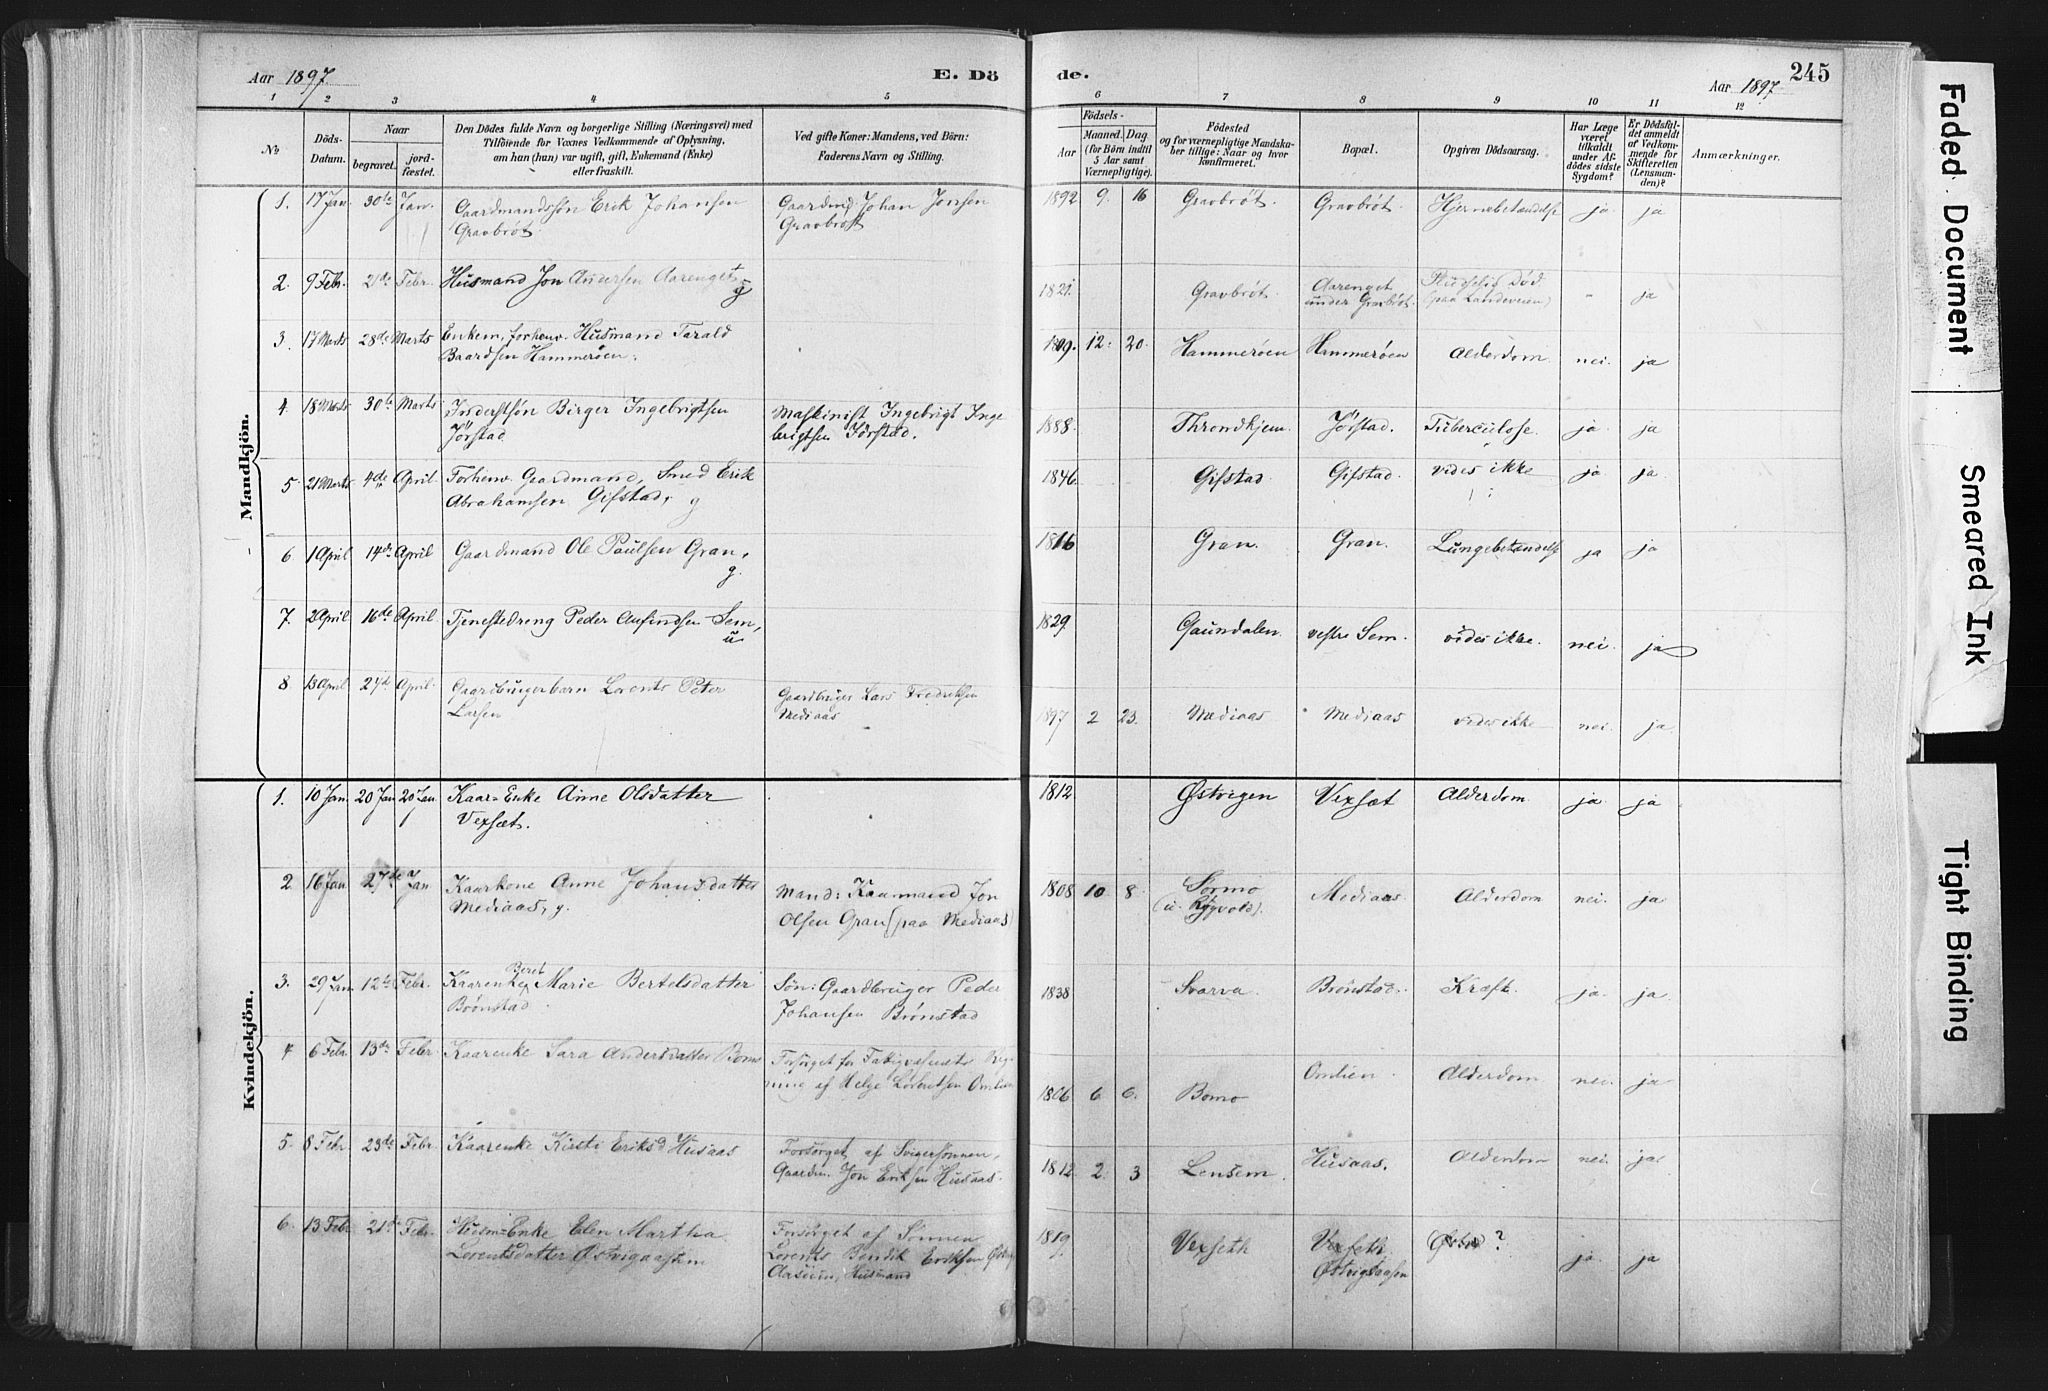 Aar 1897
E. Dö
de.
Aar 1897
245
1 2 3 4 5 6 7 8 9 10 11 12
No
Döds-
Datum.
Naar
begravet.
jord-
fæstet.
Den Dödes fulde Navn og borgerlige Stilling (Næringsvei) med
Tilföiende for Voxnes Vedkommende af Oplysning,
om han (hun) var ugift, gift, Enkemand (Enke)
eller fraskilt.
Ved gifte Koner: Mandens, ved Börn:
Faderens Navn og Stilling.
Födsels-
Aar
Maaned. Dag
(for Börn indtil
5 Aar samt
Værnepligtige).
Födested
og for værnepligtige Mandska-
ber tillige: Naar og hvor
konfirmeret.
Bopæl.
Opgiven Dödsaarsag.
Har Læge
været
tilkaldt
under Af-
dödes sidste
Sygdom?
Er Dödsfal-
det anmeldt
af Vedkom-
mende for
Skifteretten
(Lensman-
den)?
Anmærkninger.
Mandkjön.
1. 17 Jan. 30te Jan. Gaardmandssøn Erik Johansen Gaardmd Johan Jonsen 1892 9. 16 Gravbrøt. Gravbrøt. Hjernebetændelse ja ja
Gravbrøt. Gravbrøt
2. 9 Febr. 21de Febr. Husmand Jon Andersen Aarenget g 1821. Gravbrøt. Aarenget Død ja
under Gravbrøt. (paa Landeveien)
3. 17 Marts 28de Marts Enkem, forhenv. Husmand Tarald 1809. 12. 20. Hammerøen Hammerøen Alderdom nei. ja
Baardsen Hammerøen.
4. 18 Marts 30te Marts Inderstsøn Birger Ingebrigtsen Maskinist Ingebrigt Inge 1888. Throndhjem. Jørstad. Tuberculose. ja. ja
Jørstad brigtsen Jørstad.
5 21 Marts 4de April. Forhenv. Gaardmand, Smed Erik 1846. Gifstad. Gifstad. vides ikke ja ja
Abrahamsen Gifstad, g
6 1 April 14de April Gaardmand Ole Paulsen Gran, 1816 Gran. Gran. Lungebetændelse ja ja
g.
7. 2 April 16de April. Tjenestedreng Peder Anfindsen Sem, 1829. Gaundalen. vestre Sem. vides ikke. nei. ja
u.
8. 13 April 27d April. Gaardbrugerbarn Lorents Peter Gaardbruger Lars Fredriksen 1897 2 23. Mediaas Mediaas vides ikke nei. ja
Larsen Mediaas
Kvindekjön.
1. 10 Jan. 20 Jan 20 Jan Kaar-Enke Anne Olsdatter 1812. Østvigen Vexsæt Alderdom. ja ja
Vexsæt.
2 16 Jan. 27de Jan Kaarkone Anne Johansdatter Mand: Kaarmand Jon 1808. 10 8. Sørmo Mediaas. Alderdom nei. ja
Mediaas, g. Olsen Gran (paa Mediaas) (u. Rygvold).
3. 29 Jan. 12te Febr. Kaarenke Beret Marie Bertelsdatter Søn: Gaardbruger Peder 1838 Svarva. Brønstad. Kræft. ja. ja
Brønstad Johansen Brønstad
4 6 Febr. 13de Febr Kaarenke Sara Andersdatter Bomo Forsørget for Fattigvæsenets Reg-
ning af Helge Lorentsen Omlien 1806 6. 6. Bomo Omlien. Alderdom nei. ja
5. 8 Febr. 23de Febr. Kaarenke Kirsti Eriksd Husaas Forsørget af Svigersønnen, 1812 2. 3 Lensem. Husaas. Alderdom nei. ja
Gaardm. Jon Eriksen Husaas.
6. 13 Febr. 21de Febr. Husm-Enke Elen Martha Forsørget af Sønnen 1819. Vexseth Vexseth ? ja. ja
Lorentsdatter Lorents Bendik Eriksen
Husmand
Faded Document
Smeared Ink
Tight Binding